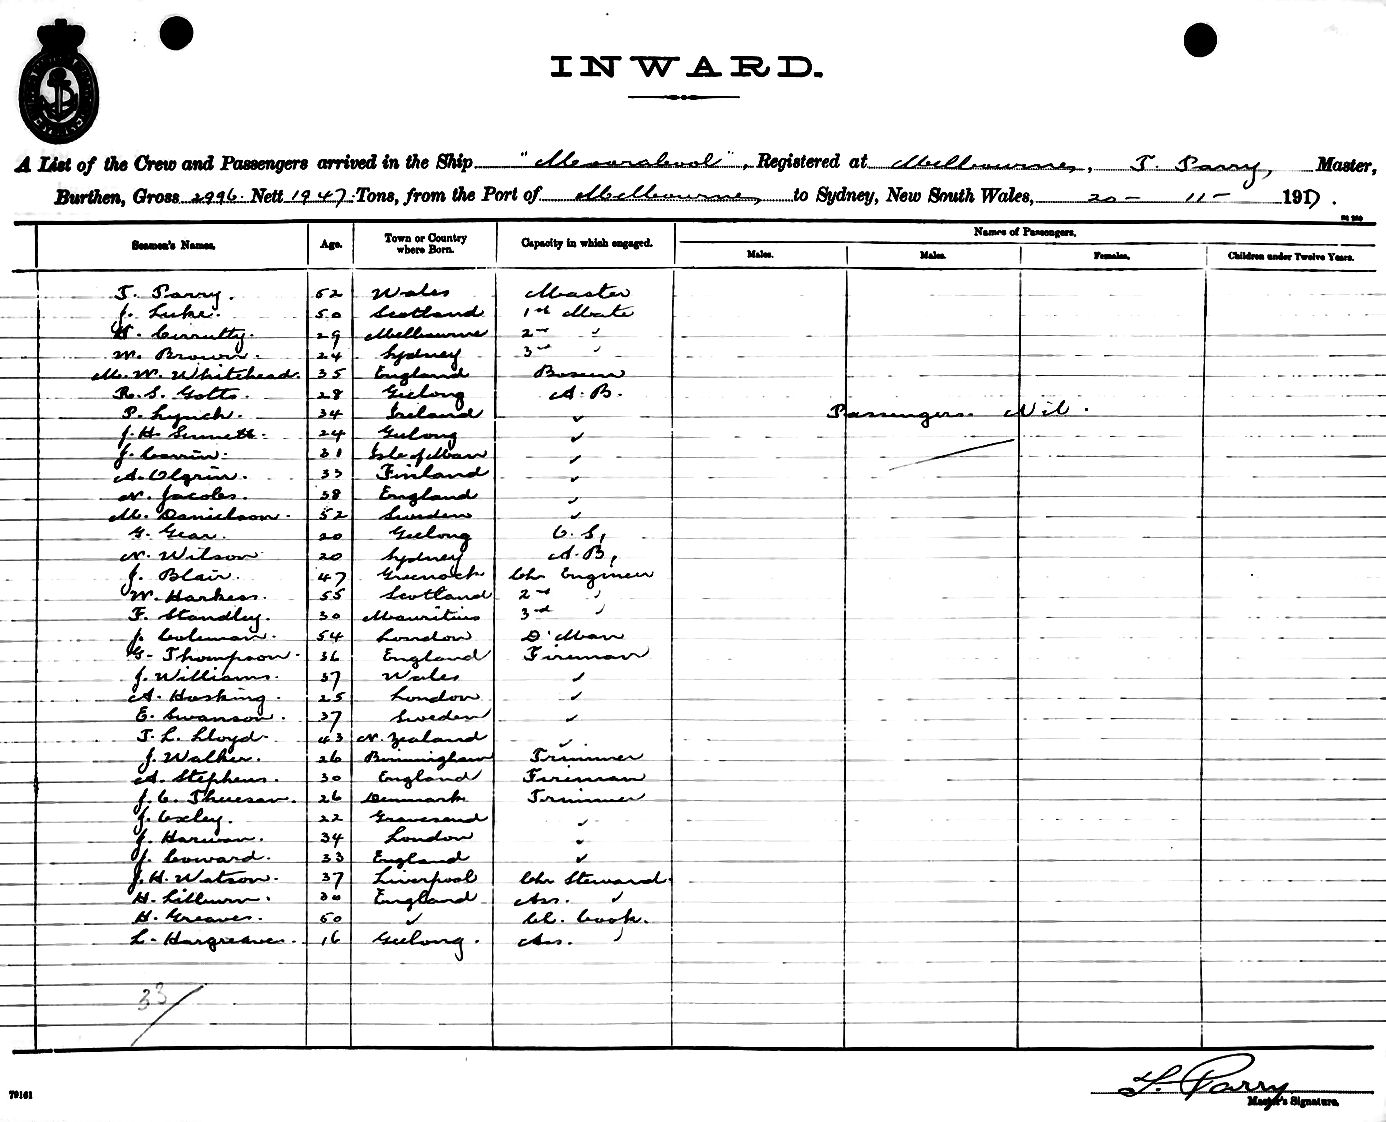 INWARD.
A List of the Crew and Passengers arrived in the Ship "Moorabool", Registered at Melbourne, T. Parry, Master,
Burthen, Gross 2996 Nett 1947 Tons, from the Port of Melbourne, to Sydney, New South Wales, 20 - 11 - 191
Seamen's Names. Age. Town or Country where Born. Capacity in which engaged. Names of Passengers.
Males. Males. Females. Children under Twelve Years.
T. Parry. 52 Wales Master
J. Luke. 50 Scotland 1st Mate
29 Melbourne 2nd "
W. Brown. 24 Sydney 3rd "
M. W. Whitehead. 35 England Bosun
R. S. Gotts. 28 Geelong A.B.
P. Lynch. 34 Ireland ✓ Passengers. Nil.
J. H. Sinnett. 24 Geelong ✓
J. 31 Isle of Man ✓
A. 33 Finland ✓
N. Jacobs. 38 England ✓
M. Danielson. 52 Sweden ✓
G. Gear. 20 Geelong O.S,
N. Wilson 20 Sydney A.B,
J. Blair. 47 Greenock Chr Engineer
W. Harkess. 55 Scotland 2nd "
F. Standley. 30 Mauritius 3rd "
J. Coleman. 54 London D'Man
G. Thompson. 36 England Fireman
J. Williams. 37 Wales ✓
A. Hosking. 25 London ✓
E. Swanson. 37 Sweden ✓
T. L. Lloyd. 43 N. Zealand ✓
J. Walker. 26 Birmingham Trimmer
A. Stephens. 30 England Fireman
J. C. Thuesen. 26 Denmark Trimmer
J. Oxley. 22 Gravesend ✓
J. Harman. 34 London ✓
J. Coward. 33 England ✓
J. H. Watson. 37 Liverpool Chr Steward.
H. Lilburn. 30 England Ass. "
H. Greaves. 50 ✓ Ch. Cook.
L. Hargreaves. 16 Geelong. Ass. "
33/
T. Parry
Master's Signature.
79161